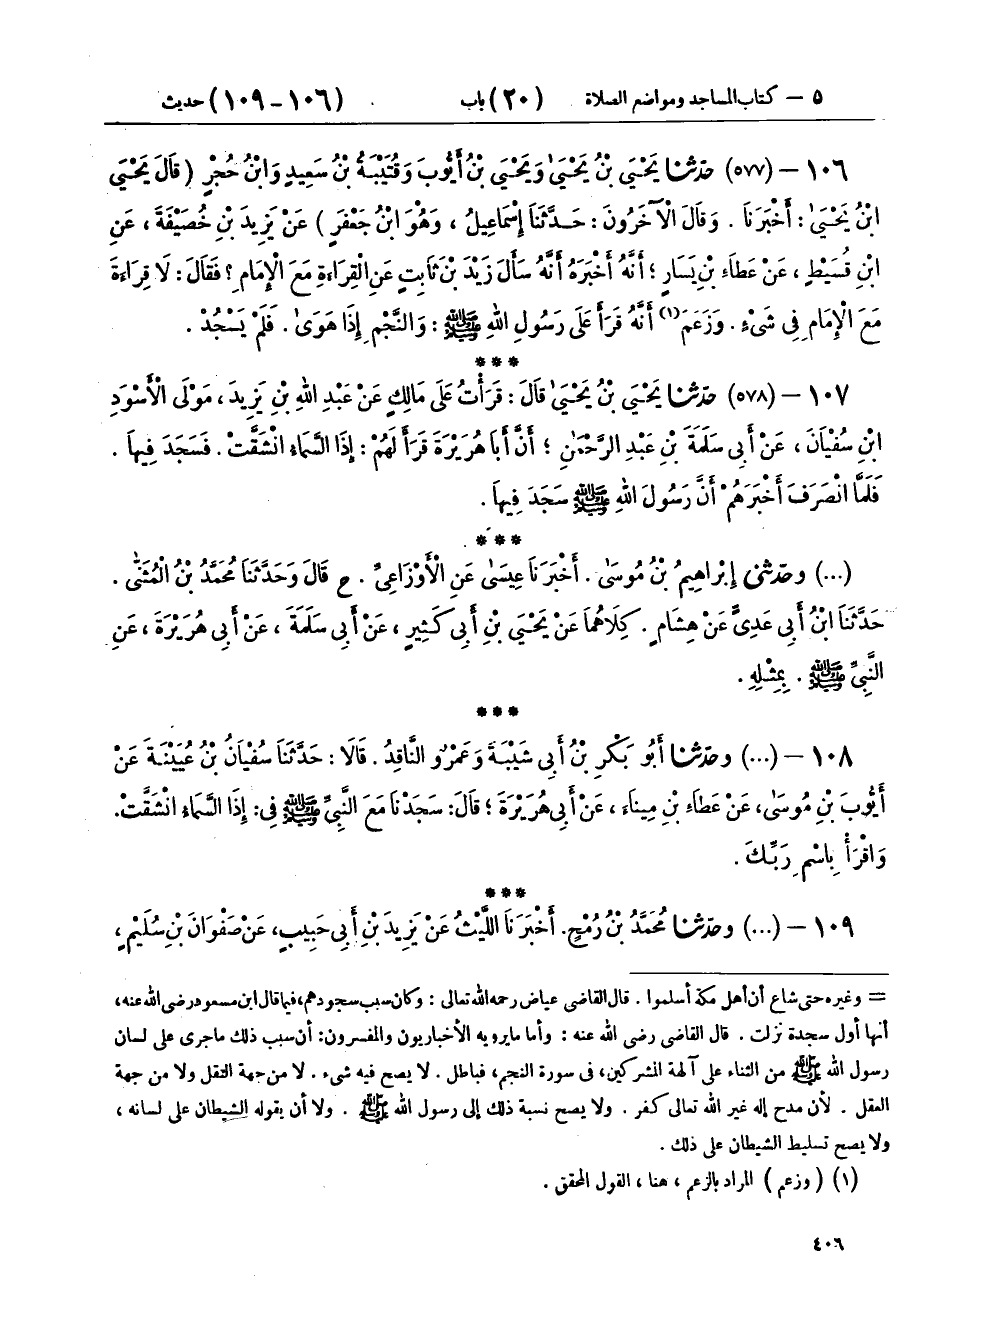 ٥ — كتاب المساجد ومواضع الصلاة (٢٠) باب (١٠٦-١٠٩) حديث
١٠٦ — (٥٧٧) حَدَّثَنَا يَحْيَىٰ بْنُ يَحْيَىٰ وَيَحْيَىٰ بْنُ أَيُّوبَ وَقُتَيْبَةُ بْنُ سَعِيدٍ وَابْنُ حُجْرٍ ( قَالَ يَحْيَىٰ
ابْنُ يَحْيَىٰ : أَخْبَرَنَا . وَقَالَ الْآخَرُونَ : حَدَّثَنَا إِسْمَاعِيلُ ، وَهُوَ ابْنُ جَعْفَرٍ ) عَنْ يَزِيدَ بْنِ خُصَيْفَةَ ، عَنِ
ابْنِ قُسَيْطٍ ، عَنْ عَطَاءِ بْنِ يَسَارٍ ؛ أَنَّهُ أَخْبَرَهُ أَنَّهُ سَأَلَ زَيْدَ بْنَ ثَابِتٍ عَنِ الْقِرَاءَةِ مَعَ الْإِمَامِ ؟ فَقَالَ : لَا قِرَاءَةَ
مَعَ الْإِمَامِ فِي شَيْءٍ . وَزَعَمَ(١) أَنَّهُ قَرَأَ عَلَىٰ رَسُولِ اللهِ ﷺ : وَالنَّجْمِ إِذَا هَوَىٰ . فَلَمْ يَسْجُدْ .
***
١٠٧ — (٥٧٨) حَدَّثَنَا يَحْيَىٰ بْنُ يَحْيَىٰ قَالَ : قَرَأْتُ عَلَىٰ مَالِكٍ عَنْ عَبْدِ اللهِ بْنِ يَزِيدَ ، مَوْلَى الْأَسْوَدِ
ابْنِ سُفْيَانَ ، عَنْ أَبِي سَلَمَةَ بْنِ عَبْدِ الرَّحْمَٰنِ ؛ أَنَّ أَبَا هُرَيْرَةَ قَرَأَ لَهُمْ : إِذَا السَّمَاءُ انْشَقَّتْ . فَسَجَدَ فِيهَا .
فَلَمَّا انْصَرَفَ أَخْبَرَهُمْ أَنَّ رَسُولَ اللهِ ﷺ سَجَدَ فِيهَا .
***
(...) وحَدَّثَنِي إِبْرَاهِيمُ بْنُ مُوسَىٰ . أَخْبَرَنَا عِيسَىٰ عَنِ الْأَوْزَاعِيِّ . ح قَالَ وَحَدَّثَنَا مُحَمَّدُ بْنُ الْمُثَنَّىٰ .
حَدَّثَنَا ابْنُ أَبِي عَدِيٍّ عَنْ هِشَامٍ . كِلَاهُمَا عَنْ يَحْيَىٰ بْنِ أَبِي كَثِيرٍ ، عَنْ أَبِي سَلَمَةَ ، عَنْ أَبِي هُرَيْرَةَ ، عَنِ
النَّبِيِّ ﷺ . بِمِثْلِهِ .
***
١٠٨ — (...) وحَدَّثَنَا أَبُو بَكْرِ بْنُ أَبِي شَيْبَةَ وَعَمْرٌو النَّاقِدُ . قَالَا : حَدَّثَنَا سُفْيَانُ بْنُ عُيَيْنَةَ عَنْ
أَيُّوبَ بْنِ مُوسَىٰ، عَنْ عَطَاءِ بْنِ مِينَاءَ ، عَنْ أَبِي هُرَيْرَةَ ؛ قَالَ: سَجَدْنَا مَعَ النَّبِيِّ ﷺ فِي: إِذَا السَّمَاءُ انْشَقَّتْ.
وَاقْرَأْ بِاسْمِ رَبِّكَ .
***
١٠٩ — (...) وحَدَّثَنَا مُحَمَّدُ بْنُ رُمْحٍ. أَخْبَرَنَا اللَّيْثُ عَنْ يَزِيدَ بْنِ أَبِي حَبِيبٍ، عَنْ صَفْوَانَ بْنِ سُلَيْمٍ ،
= وغيره حتى شاع أن أهل مكة أسلموا . قال القاضي عياض رحمه الله تعالى : وكان سبب سجودهم، فيما قال ابن مسعود رضى الله عنه،
أنها أول سجدة نزلت . قال القاضي رضى الله عنه : وأما ما يرويه الأخباريون والمفسرون: أن سبب ذلك ما جرى على لسان
رسول الله ﷺ من الثناء على آلهة المشركين، فى سورة النجم، فباطل . لا يصح فيه شيء . لا من جهة النقل ولا من جهة
العقل . لأن مدح إله غير الله تعالى كفر . ولا يصح نسبة ذلك إلى رسول الله ﷺ . ولا أن يقوله الشيطان على لسانه ،
ولا يصح تسليط الشيطان على ذلك .
(١) (وزعم) المراد بالزعم ، هنا ، القول المحقق .
٤٠٦